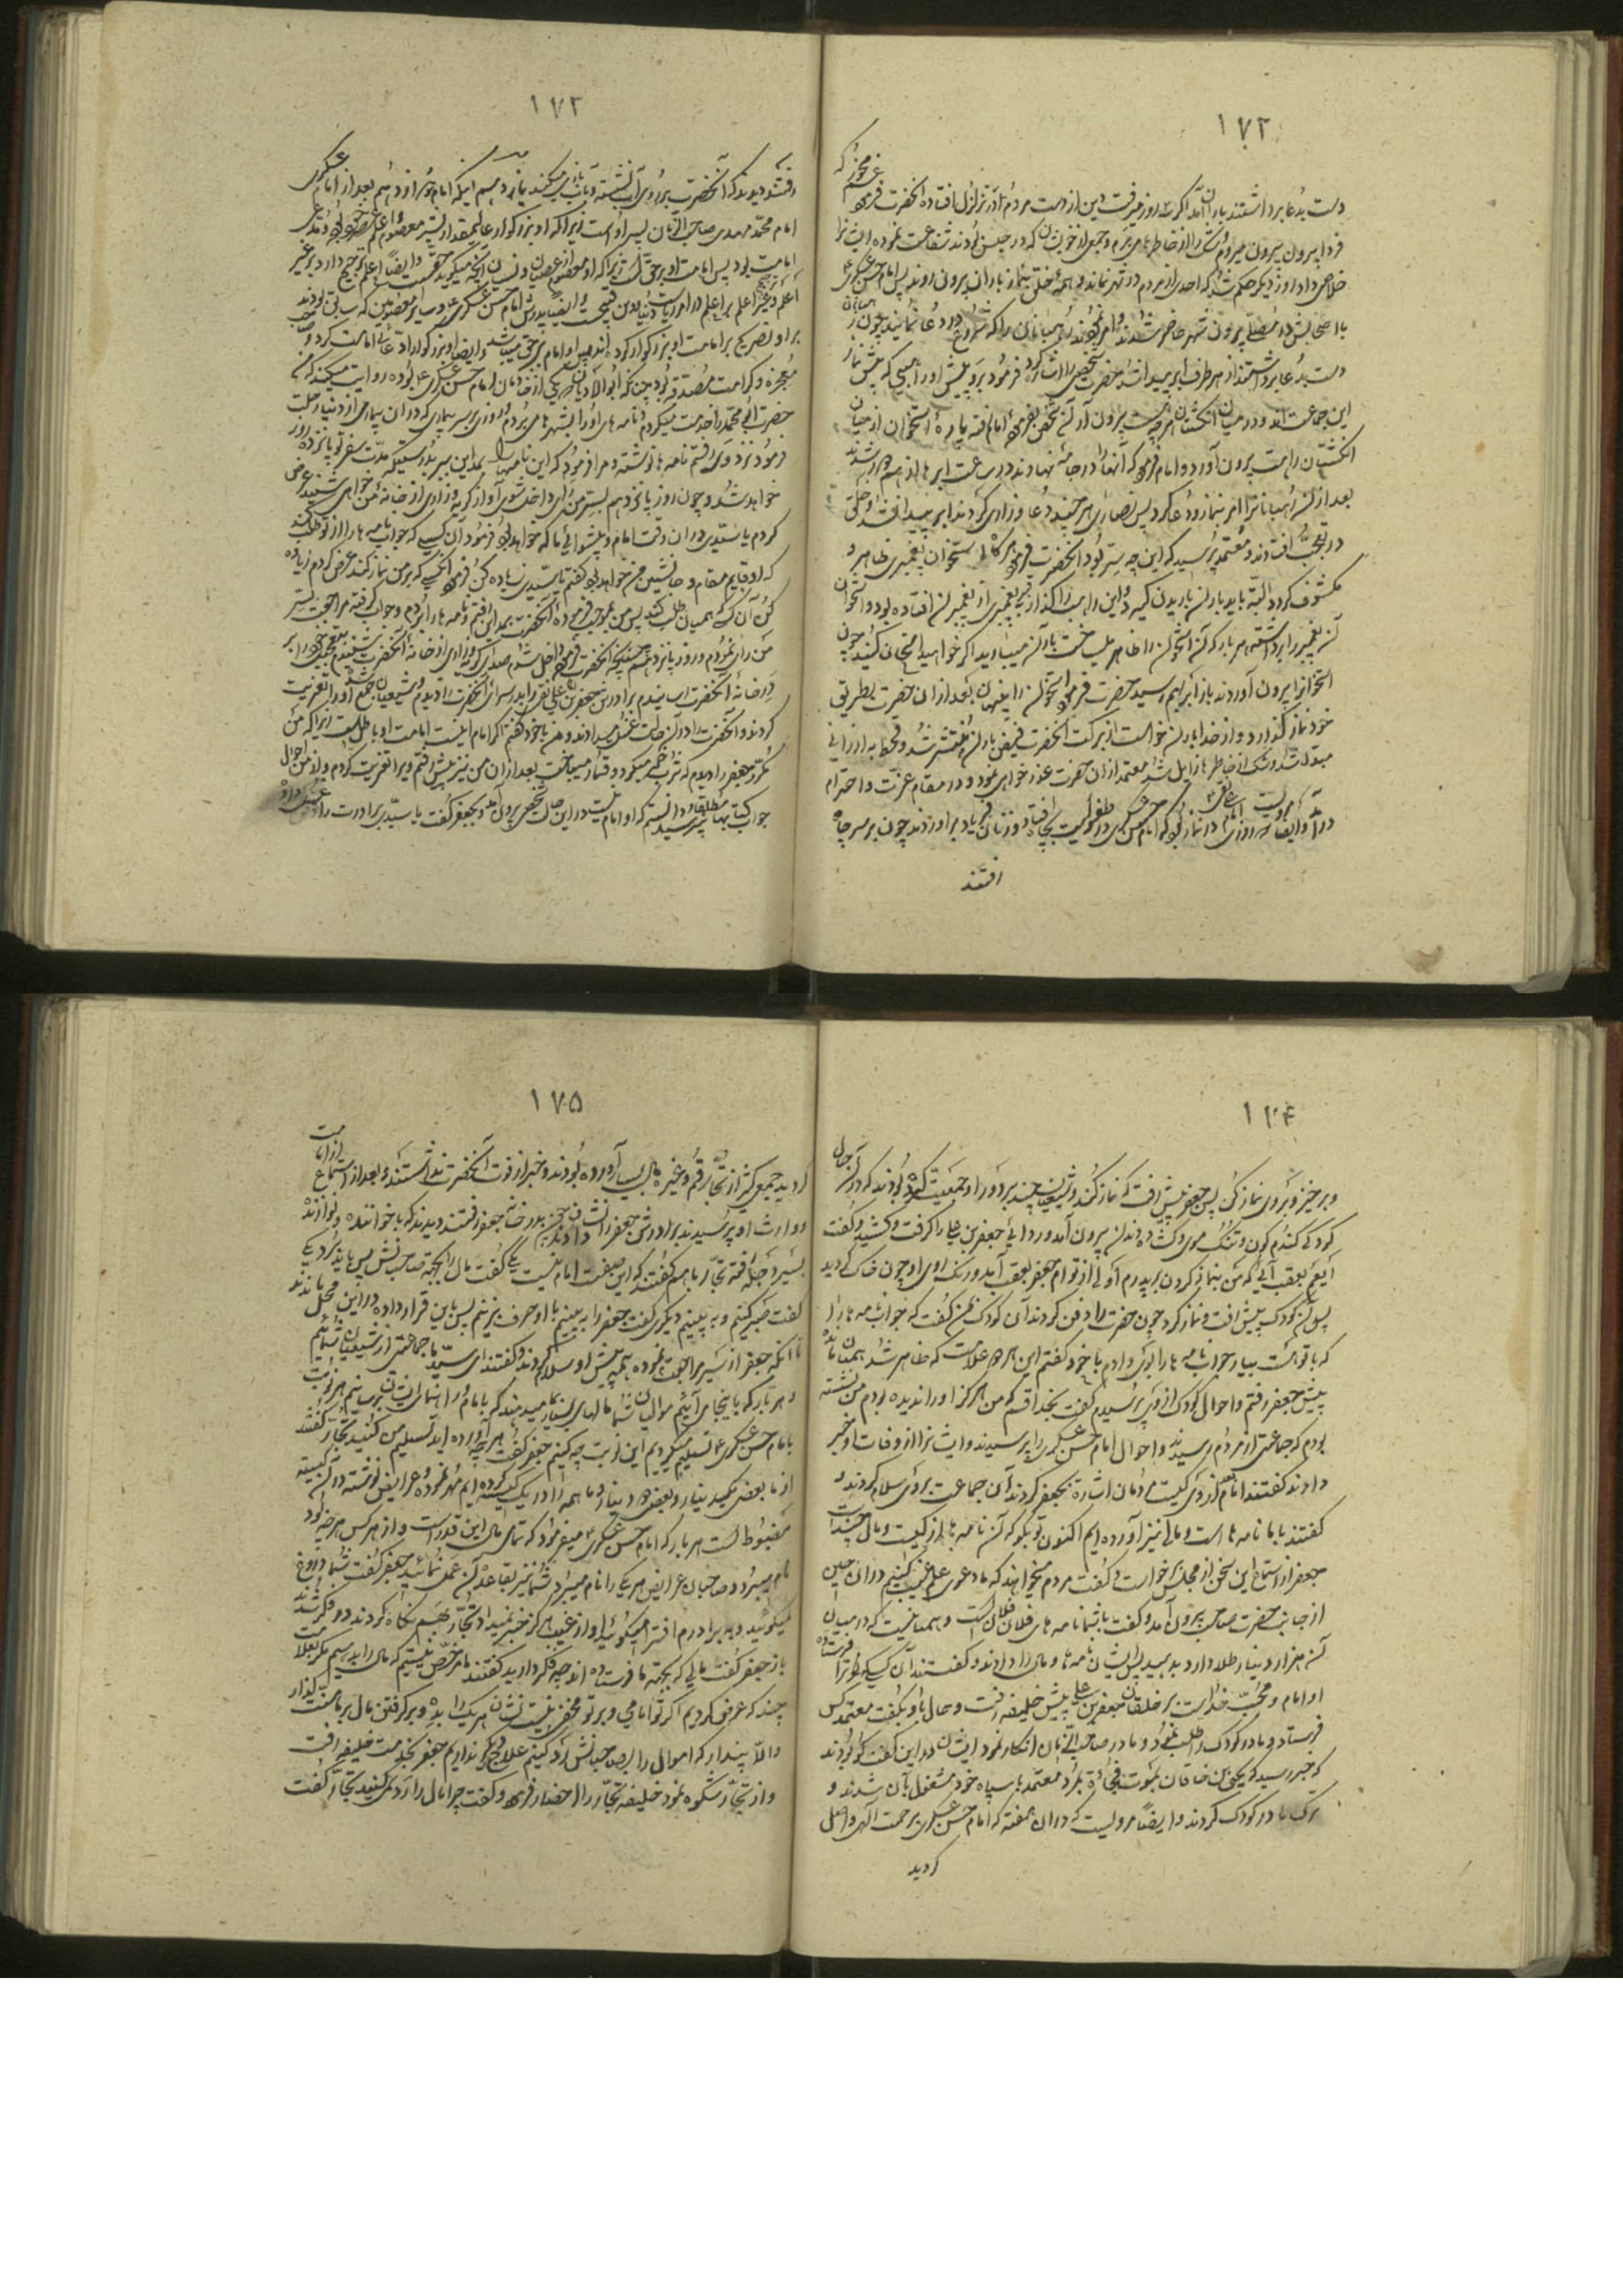 ۱۷۲
دست بدعا برداشتند باران آمد اگر روز میرفت دین از دست مردم آذر تزلزل افتاده آنحضرت فرمود غم مخور که
فردا بیرون میروم شک را از خاطرهای مردم و جمعی از خویشان که در حبس بودند شفاعت نموده ایشانرا
خلاصی داد روز دیگر حکم شد که احدی از مردم در شهر نماند و همه خلق بنماز باران بیرون روند پس امام حسن عسکری
با اصحابش در بیرون شهر حاضر شدند و امر نمودند رهبانان را که شروع در دعا نمایند چون رهبانان
دست بدعا برداشتند از هر طرف ابر پیدا شد حضرت شخصی را اشاره کرده فرمود برو پیش او راهبی که پیش نماز
این جماعت است و در میان انگشتان هر چه هست بیرون آر آن شخص بفرموده امام رفته پاره استخوان از میان
انگشتان راهب بیرون آورد و امام فرمود که آنها را در جامه نهادند در ساعت ابرها از هم شدند
بعد از آن رهبانانرا امر بنماز و دعا کرد پس نصاری هر چند دعا و زاری کردند ابر پیدا نشد و خلق
در تعجب افتادند و معتمد پرسید که این چه سر بود آنحضرت فرمود هر گاه استخوان پیغمبری ظاهر و
مکشوف گردد البته باید باران باریدن گیرد و این راهب را گذار بقبر پیغمبری از پیغمبران افتاده بود و استخوان
آن پیغمبر را برداشته هر بار که آن استخوان را ظاهر میساخت باران میبارید اگر خواهید امتحان کنید چون
استخوانرا بیرون آوردند باز ابر بهم رسید حضرت فرمود استخوان را پنهان بعد از آن حضرت بطریق
خود نماز گذارد و از خدا باران خواست از برکت آنحضرت فیض باران منتشر شد و قحط به ارزانی
مبدل شد و شک از خاطرها زایل شد معتمد از آن حضرت عذر خواهی نمود و در مقام عزت و احترام
درآمد و ایضا مرویست که روزی امام علی نقی در نماز بود که امام حسن عسکری در طفولیت بچاه افتاد و زنان فریاد برآوردند چون بر سر چاه
رفتند
۱۷۳
رفتند دیدند که آنحضرت بر روی آب نشسته و بآب بازی میکند یازدهم اینکه امام دوازدهم بعد از امام عسکری
امام محمد مهدی صاحب الزمان پسر او است زیرا که او بزرگوار عالیمقدار
امامت بود پس امامت او بر حق است زیرا که او معصوم از عصیان و نسیان آنچه میگوید حق است و ایضا اعلم ترجیح دارد بر غیر
اعلم و غیر اعلم بر اعلم در امور ریاست دنیا و دین قبیح است و ایضا پدرش امام حسن عسکری و سایر معصومین که سابق بودند
بر او تصریح بر امامت او بزرگوار کرده اند پس او امام بر حق میباشد و ایضا او بزرگوار ادعای امامت کرد و صاحب
معجزه و کرامت مصدقه بود چنانکه ابوالادیان که یکی از خادمان امام حسن عسکری بوده روایت میکند که من
حضرت ابی محمد را خدمت میکردم و نامه های او را بشهرها می بردم روزی بر سر بیماری که در آن بیماری از دنیا رحلت
فرمود نزد وی رفتم نامه ها نوشته و مرا فرمود که این نامها را بمداین ببر بدرستیکه مدت سفر تو پانزده روز
خواهد شد و چون روز پانزدهم بسر من رای داخل شوی آواز گریه و زاری از خانه من خواهی شنید عرض
کردم یا سیدی در آن وقت امام و پیشوای ما که خواهد بود فرمود آن کسی که جواب نامه ها را از تو طلب کند
که او قایم مقام و جانشین من خواهد بود گفتم یا سیدی زیاده کن فرمود آنکسی که بر من نماز کند عرض کردم زیاده
کن آن که همیان طلب کند پس من بموجب فرموده آنحضرت بمداین رفتم و نامه ها را بردم و جواب گرفته مراجعت بسر
من رای نمودم و روز پانزدهم چنانچه آنحضرت فرمود داخل شدم صدای گریه و زاری از خانه آنحضرت شنیدم بتعجیل خود را بر
در خانه آنحضرت رسانیدم برادرش جعفر بن علی نقی را بر در سرای آنحضرت را دیدم و شیعیان جمع شده او را تعزیت
کردند و آنحضرت را در آن حالت غسل میدادند و من با خود گفتم اگر امام اینست امامت او باطل است زیرا که من
مکرر جعفر را دیدم که شراب خمر میکرد و قمار میباخت بعد از آن من نیز پیش رفتم و ویرا تعزیت کردم و از من احوال
جواب کتابتها مطلقا نپرسید دانستم که او امام نیست در این حال شخصی بیرون آمد و بجعفر گفت یا سیدی برادرت را غسل دادند
۱۷۴
و برخیز و بر وی نماز کن پس جعفر پیش رفت که نماز کند و شیعیان چند بر دور او جمعیت کرده بودند که در آن حال
کودکی گندم گون و تنگ موی و گشاده دندان بیرون آمد و ردای جعفر بن علی را گرفت و کشید و گفت
ای عم بعقب آی که من بنماز کردن بر پدرم اولی از توام جعفر بعقب آمد و رنگ روی او چون خاک گردید
پس آن کودک پیش رفت و نماز کرد چون حضرت را دفن کردند آن کودک بمن گفت که جواب نامه ها را
که با تو هست بیار جواب نامه ها را بوی دادم با خود گفتم این هر دو علامت که ظاهر شد همیان مانده
پیش جعفر رفتم و احوال کودک از وی پرسیدم گفت بخدا قسم که من هرگز او را ندیده بودم من نشسته
بودم که جماعتی از مردم رسیدند و احوال امام حسن عسکری را پرسیدند و ایشانرا از وفات او خبر
دادند گفتند امام بعد از وی کیست مردمان اشاره بجعفر کردند آن جماعت بر وی سلام کردند و
گفتند با ما نامه هاست و مالی نیز آورده ایم اکنون تو بگو که آن نامه ها از کیست و مال چند است
جعفر از استماع این سخن از مجلس برخاست و گفت مردم میخواهند که ما دعوی علم غیب کنیم در آن حین
از جانب حضرت صاحب بیرون آمد و گفت با شما نامه های فلان فلان است و همیانیست که در میان
آن هزار دینار طلا دارد بدهید پس ایشان نامه ها و مال را دادند و گفتند آن کسی که تو را فرستاده
او امام و حجت خداست بر خلقان جعفر بن علی پیش خلیفه رفت و حال باو بگفت معتمد کس
فرستاد و مادر کودک را طلب نمود و مادر صاحب الزمان انکار نمود ایشان در این گفت گو بودند
که خبر رسید که یحیی بن خاقان بموت فجاءة بمرد معتمد با سپاه خود مشغول بآن شدند و
ترک مادر کودک کردند و ایضا مرویست که در آن هفته که امام حسن عسکری برحمت الهی واصل
گردید
۱۷۵
گردید جمعی کثیر از تجار قم و غیره مال بسیار آورده بودند و خبر از فوت آنحضرت نداشتند و بعد از استماع از امامت
و وارث او پرسیدند برادرش جعفر را نشان دادند بدر خانه جعفر رفتند دیدند که با خواننده و نوازنده
بسیر دجله رفته تجار باهم گفتند که این صفت امام نیست یکی گفت مال را بجهة صاحبش پس باید گردید یکی
گفت صبر کنیم و به بینیم دیگری گفت جعفر را به بینیم با او حرف بزنیم پس باین قرار داده در این محل ماندند
تا آنکه جعفر از سیر مراجعت نموده همه پیش او سلام کردند و گفتند ای سید ما جماعتی از شیعیان شمائیم
و هر بار که باینجا می آئیم موالیان شما مالهای بسیار میدهند که بامام و راهنمای ایشان برسانیم هر نوبت
بامام حسن عسکری تسلیم میکردیم این نوبت چه کنیم جعفر گفت هر آنچه آورده اید تسلیم من کنید تجار گفتند
از ما بعضی یکصد دینار و بعضی دو دینار و ما همه را در یک کیسه کرده ایم مهر نموده و عرایض نوشته در آن کیسه
مضبوط است هر بار که امام حسن عسکری میفرمود که تمامی مال این قدر است و از هر کس هر چه بود
نام میبرد و صاحبان عرایض هر یک را نام میبرد شما نیز بقاعده آن عمل نمائید جعفر گفت شما دروغ
میگوئید و به برادرم افترا میگوئید او از غیب هرگز خبر نمیداد تجار بهم نگاه کردند در فکر شدند
باز جعفر گفت مالی که بجهة ما فرستاده اند چه فکر دارید گفتند ما مرخص نیستیم که مال را بدهیم مگر بعلامت
چند که عرض کردیم اگر تو امامی و بر تو مخفی نیست نشان هر یک را بده و بر گرفتن مال بر ما منت گذار
والا پندار که اموال را بصاحبانش رد کنیم علاجی دیگر نداریم جعفر بخدمت خلیفه رفت
و از تجار شکوه نمود خلیفه تجار را احضار فرمود و گفت چرا مال را رد نمی کنید تجار گفتند